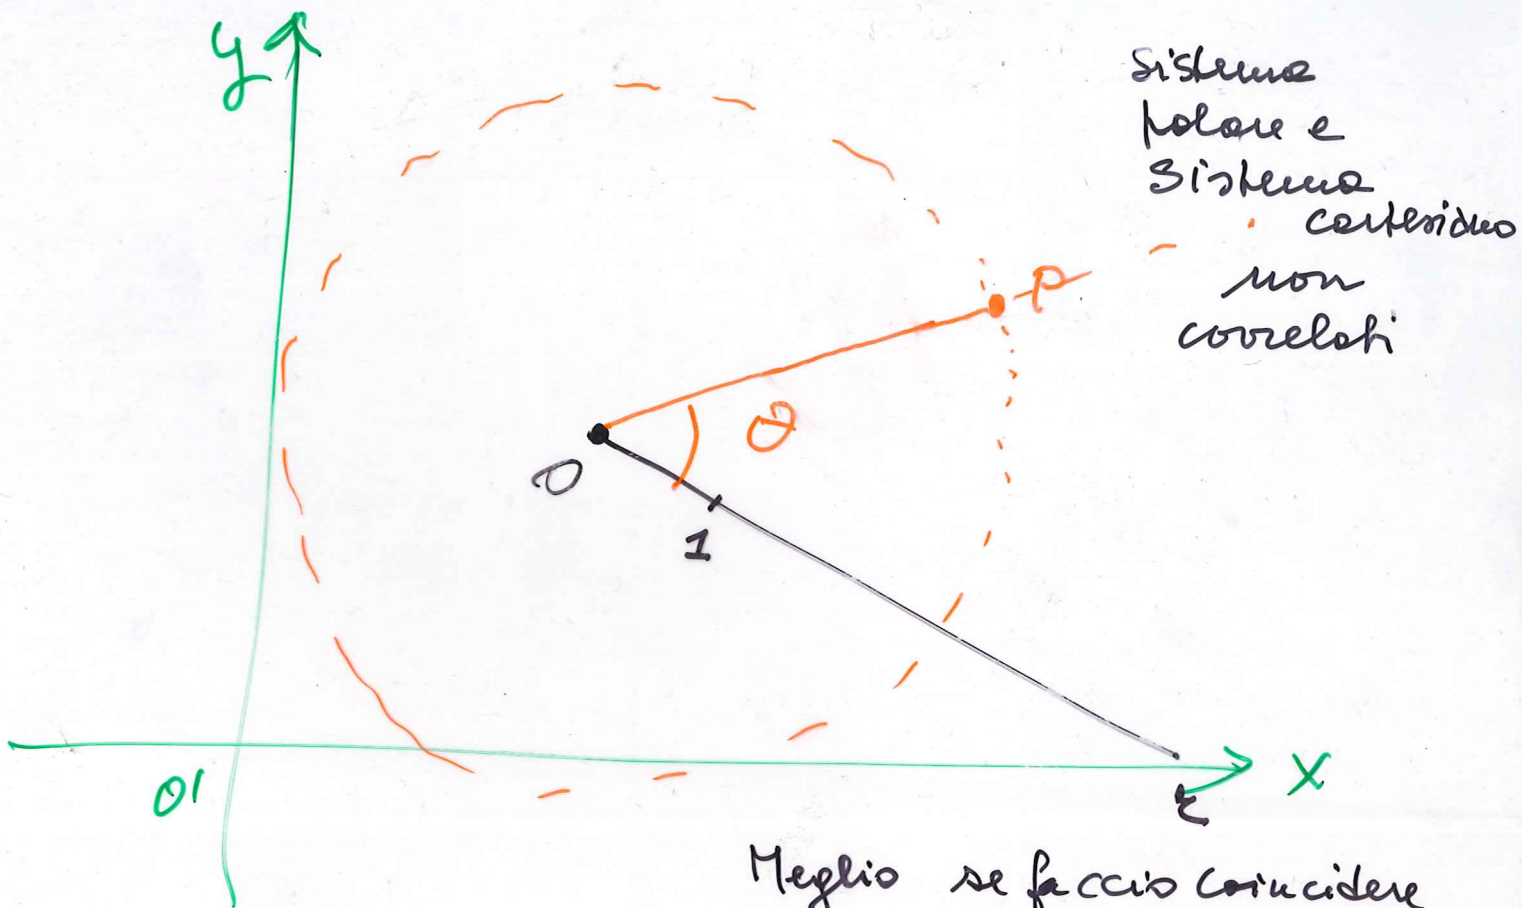 y
Sistema
polare e
Sistema
cartesiano
non
correlati
P
θ
O
1
O'
x
r
Meglio se faccio coincidere